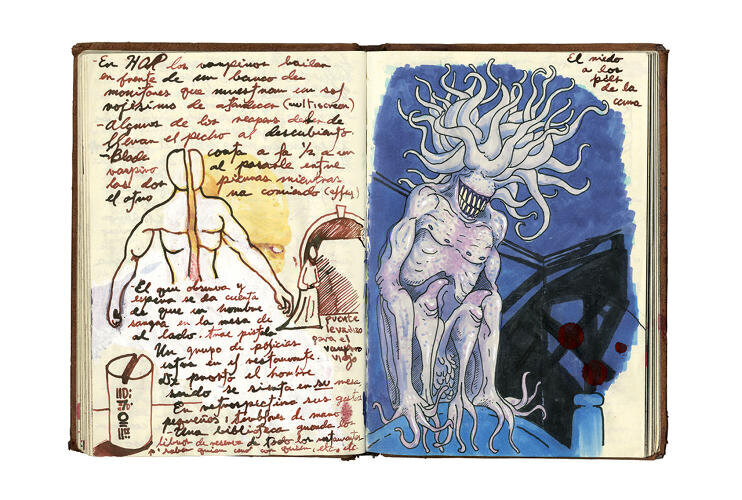 - En HOP los vampiros bailan
en frente de un banco de
monitores que muestran un sol
rojísimo de atardecer (multiscreen)
- Algunos de los reapers deben de
llevan el pecho al descubierto.
- Blade corta a la 1/2 a un
vampiro al pasarle entre
las dos piernas mientras
el otro va corriendo (effex)
- El que observa y
espera se da cuenta
de que un hombre
sangra en la mesa de
al lado. trae pistola
Un grupo de policías
esta en el restaurante.
De pronto el hombre
se sienta en su mesa
En retrospectiva sus gustos
pequeños, temblores de mano
Una biblioteca guarda los
libros de reserva de todos los restaurantes
p' saber quien cenó con quien, etc, etc
puente
levadizo
para el
vampiro
viejo
El miedo
a los
pies
de la
cama